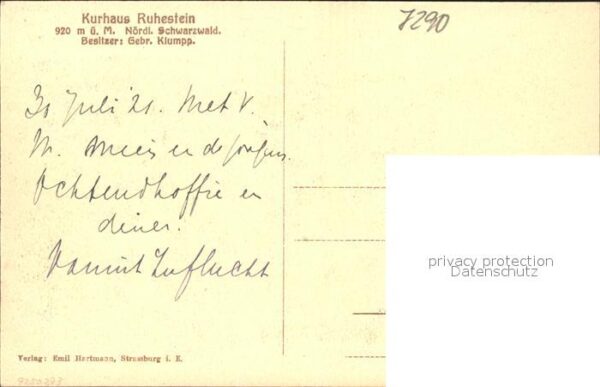 Kurhaus Ruhestein
920 m ü. M. Nördl. Schwarzwald.
Besitzer: Gebr. Klumpp.
7290
30 Juli '21. Met V.
M. Mies en de
Ochtendkoffie en
diner.
Vanuit Zuflucht
privacy protection
Datenschutz
Verlag: Emil Hartmann, Strassburg i. E.